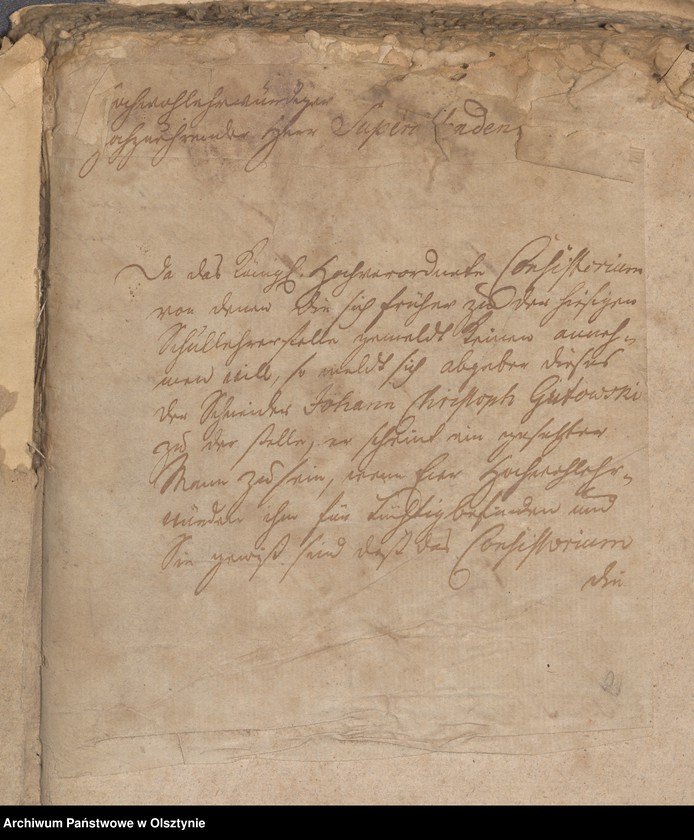 Hochwohlehrwürdiger
Hochzuehrender Herr Superintendent
Da das Königl. Hochverordnete Consistorium
von denen die sich früher zu der hiesigen
Schullehrerstelle gemeldt keinen anneh-
men will, so meldt sich abgeber dieses
der Schneider Johann Christoph Gutowski
zu der stelle, er scheint ein gesetzter
Mann zu sein, wenn Euer Hochwohlehr-
würden ihn für tüchtig befinden und
Sie gewiß sind daß das Consistorium
die
Archiwum Państwowe w Olsztynie